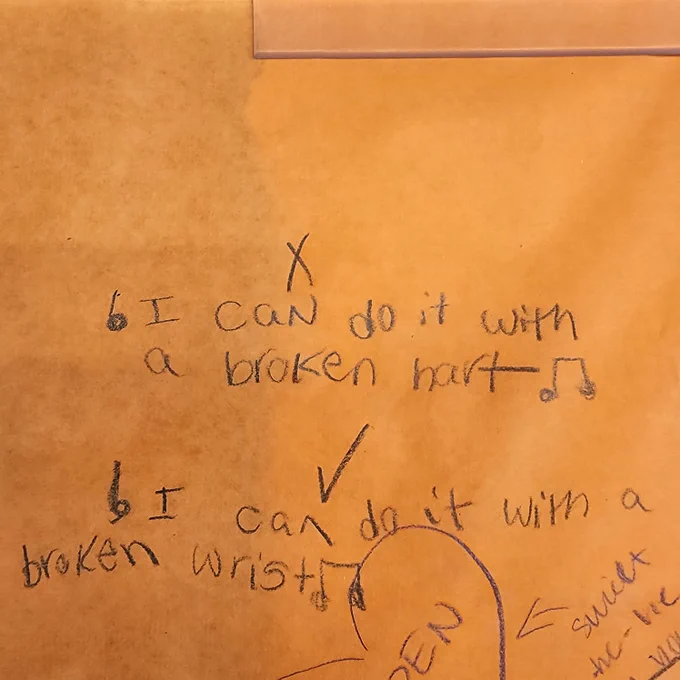 X
I can do it with
a broken hart
✓
I can do it with a
broken wrist